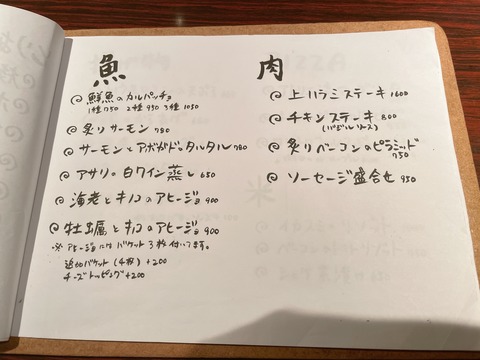 魚
鮮魚のカルパッチョ
1種 750 2種 950 3種 1050
炙りサーモン 780
サーモンとアボガドのタルタル 780
アサリの白ワイン蒸し 650
海老とキノコのアヒージョ 900
牡蠣とキノコのアヒージョ 900
※アヒージョにはバケット3枚付いてます。
追加バケット(4枚) +200
チーズトッピング +200
肉
上ハラミステーキ 1600
チキンステーキ 800
(バジルソース)
炙りベーコンのピラミッド
750
ソーセージ盛合せ 950